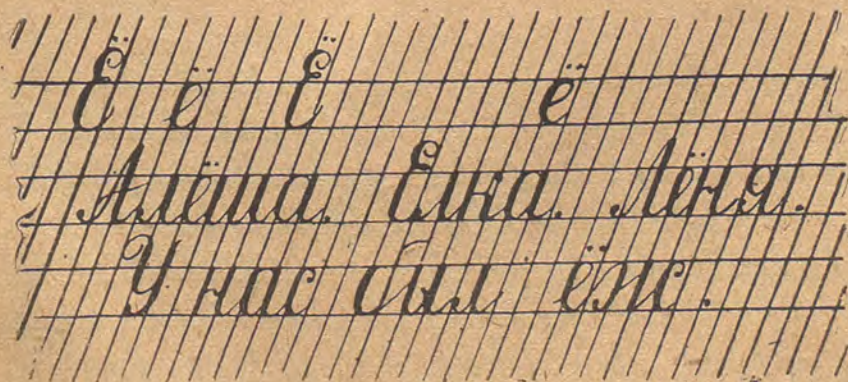 Ё ё Ё ё
Алёша. Ёлка. Лёня.
У нас был ёж.